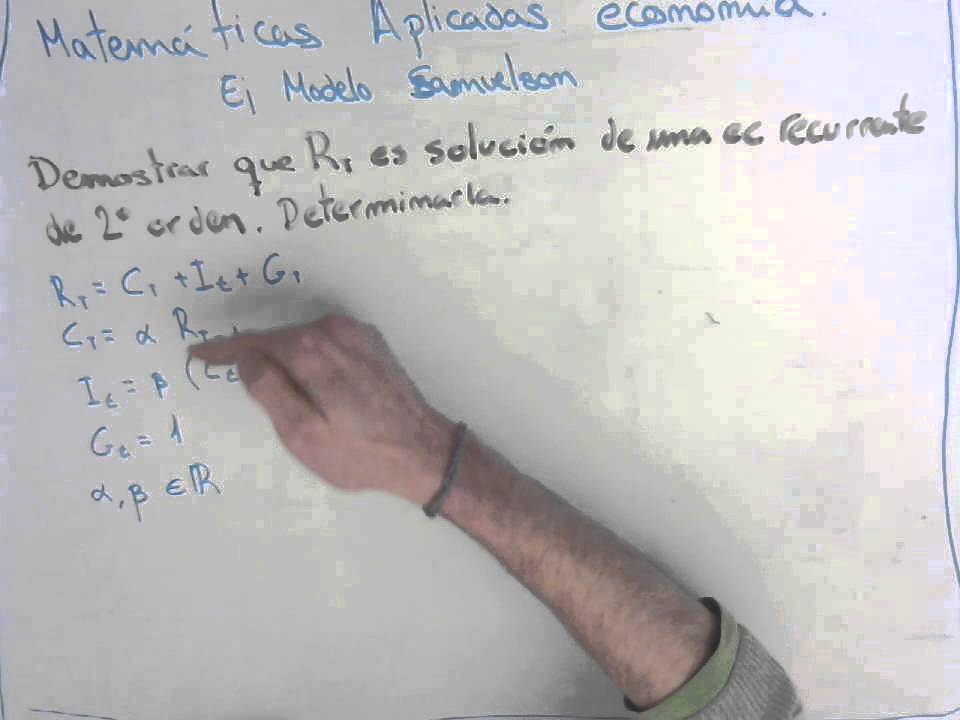 Matemáticas Aplicadas economía.
Ej Modelo Samuelson
Demostrar que R_T es solución de una ec recurrente
de 2º orden. Determinarla.
R_T = C_T + I_t + G_T
C_T = α R_T-1
I_t = β (C_t
G_t = 1
α, β ∈ ℝ